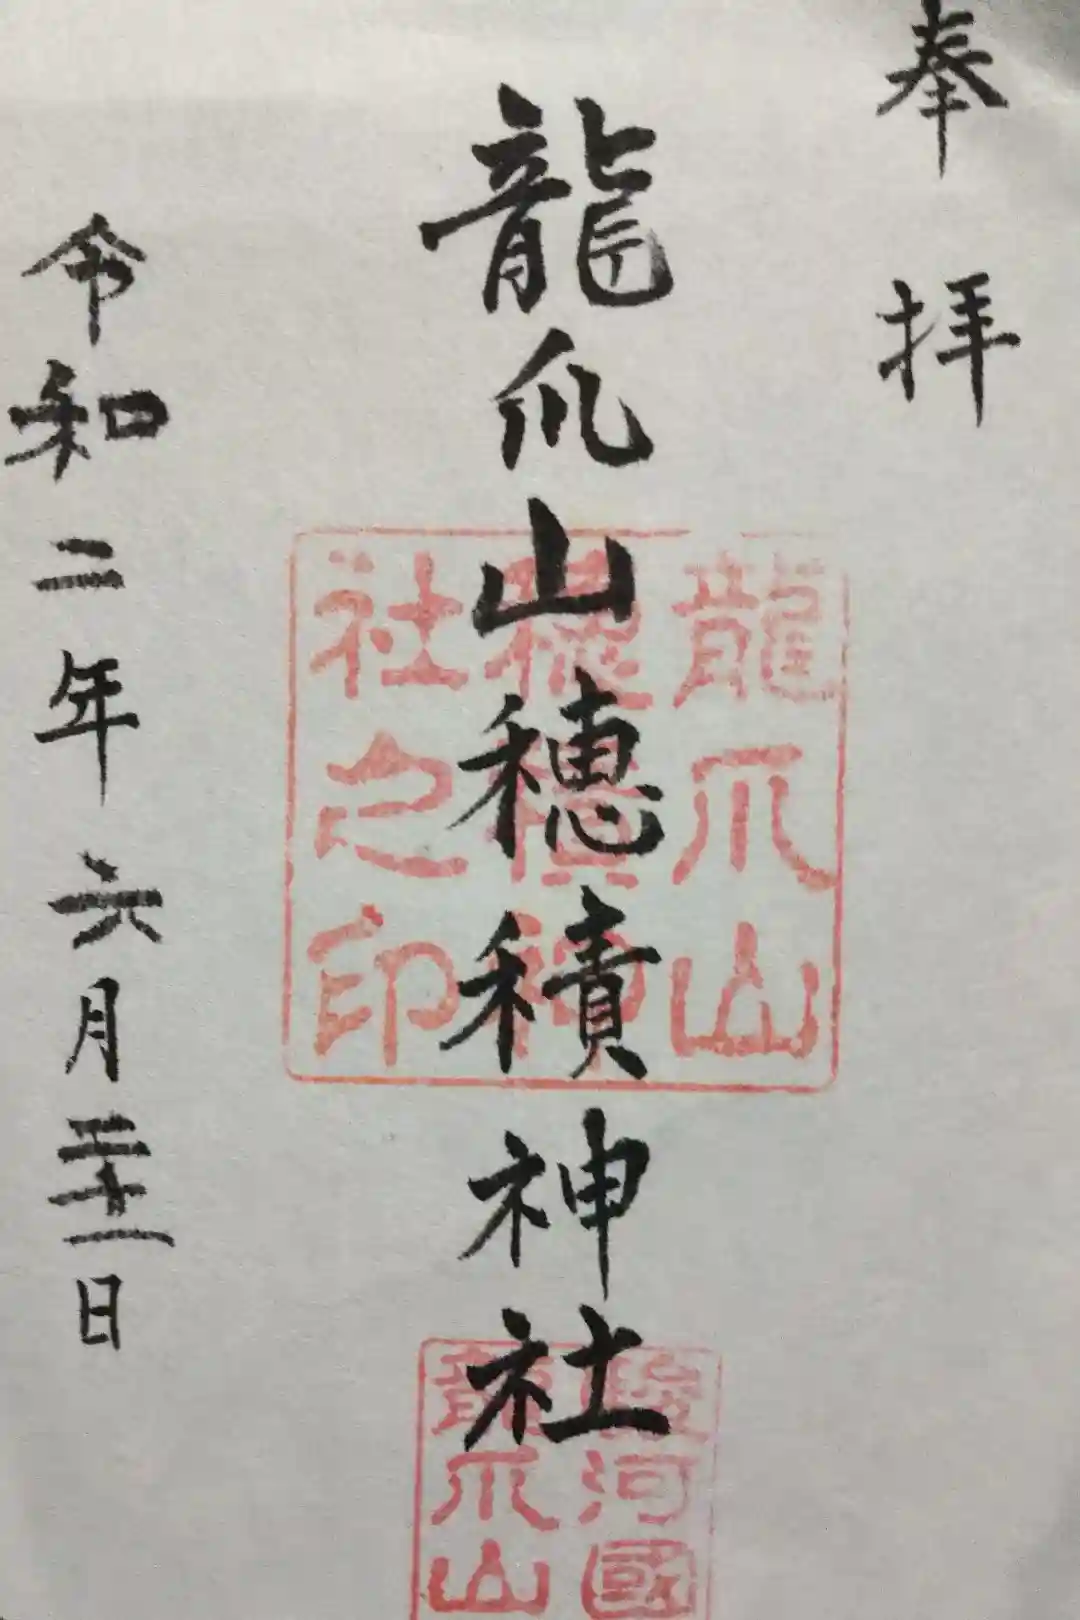 奉拝
龍爪山穂積神社
令和二年六月二十二日
龍爪山
穂積神
社之印
駿河國
龍爪山